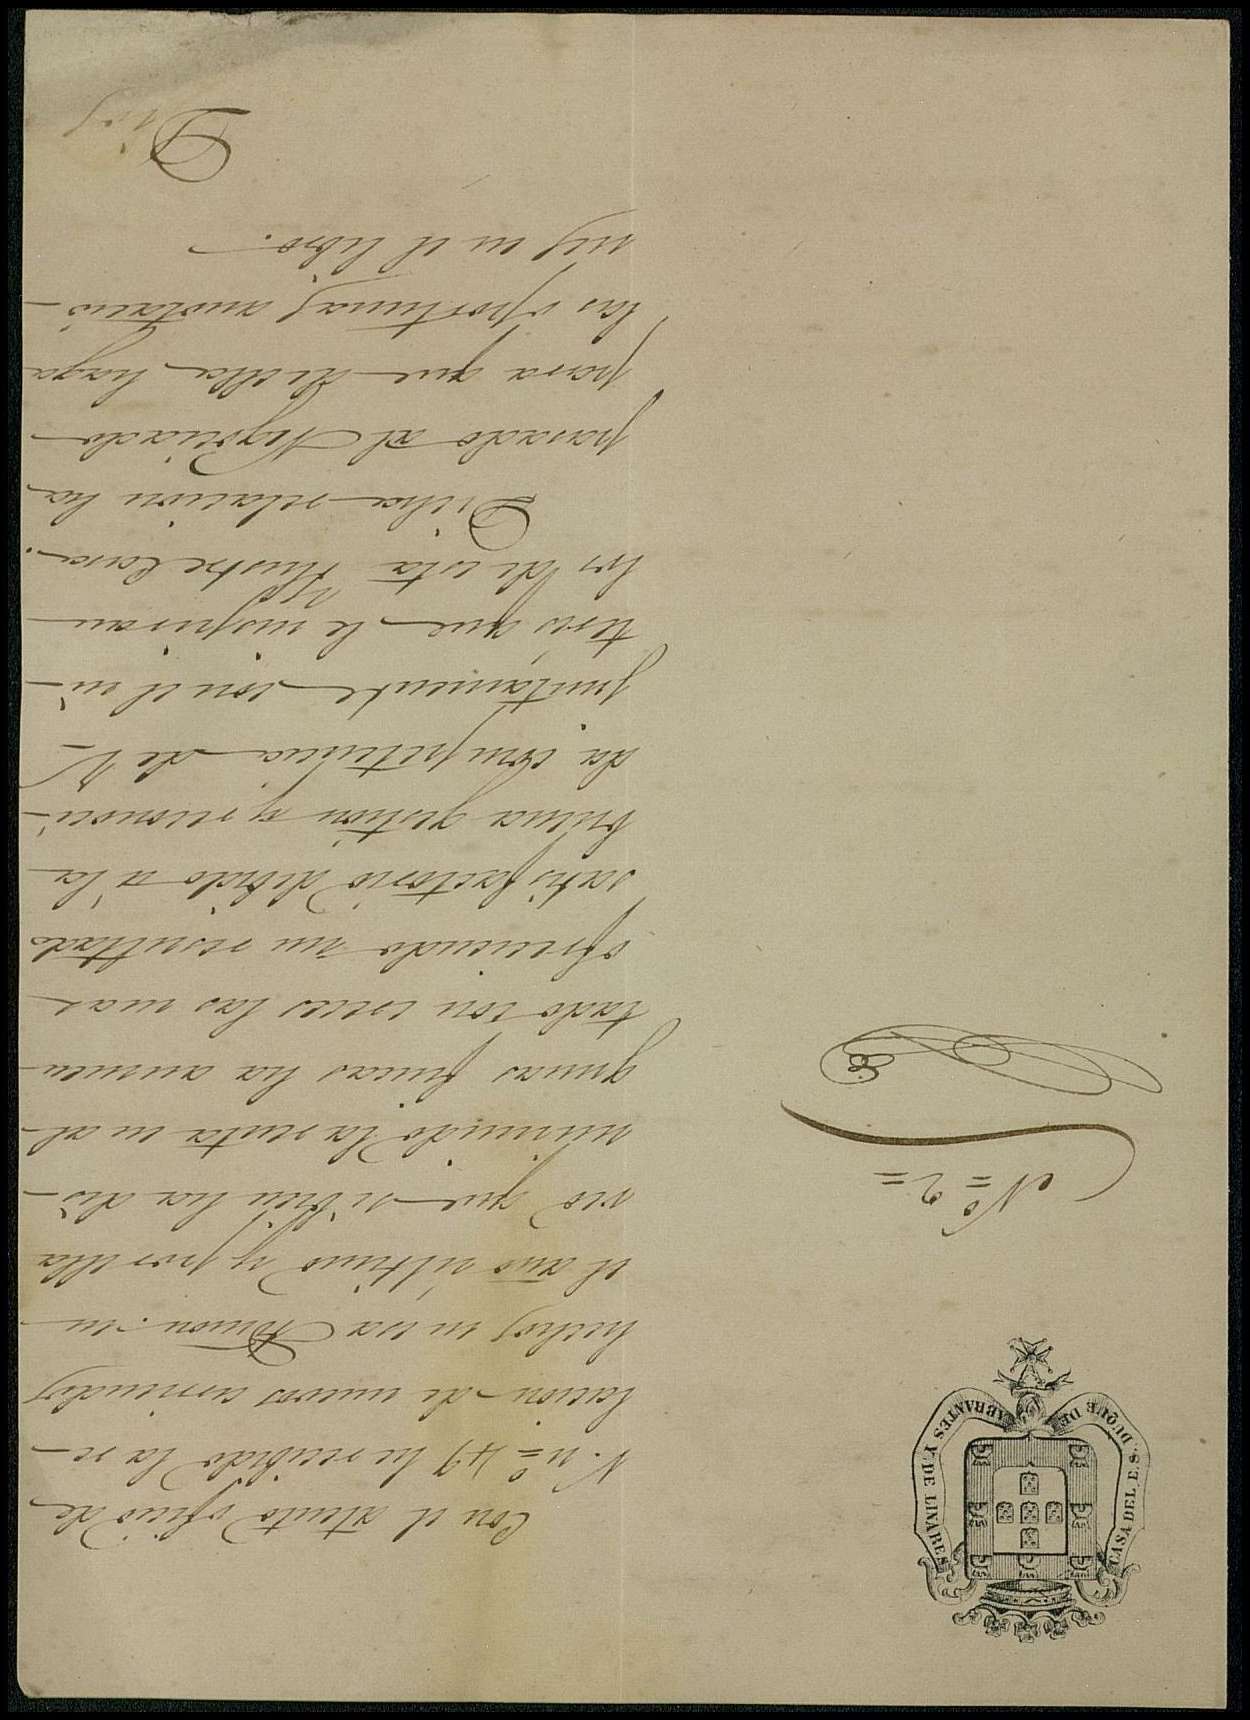 CASA DEL E.S. DUQUE DE ABRANTES Y DE LINARES
Nº 2
Con el atento oficio de
V. nº 47 he recibido la re-
lacion de nuevos arriendos
hechos en esa Admon. en
el año último y por ella
veo que si bien ha dis-
minuido la renta en al-
gunas fincas ha aumen-
tado con creces las mas
ofreciendo un resultado
satisfactorio debido á la
buena gestion y reconoci-
da competencia de V.
juntamente con el in-
teres que le inspiran
los de esta Ilustre Casa.
Dicha relacion ha
pasado al Negociado
para que de ella haga
las oportunas anotacio-
nes en el libro.
Dios